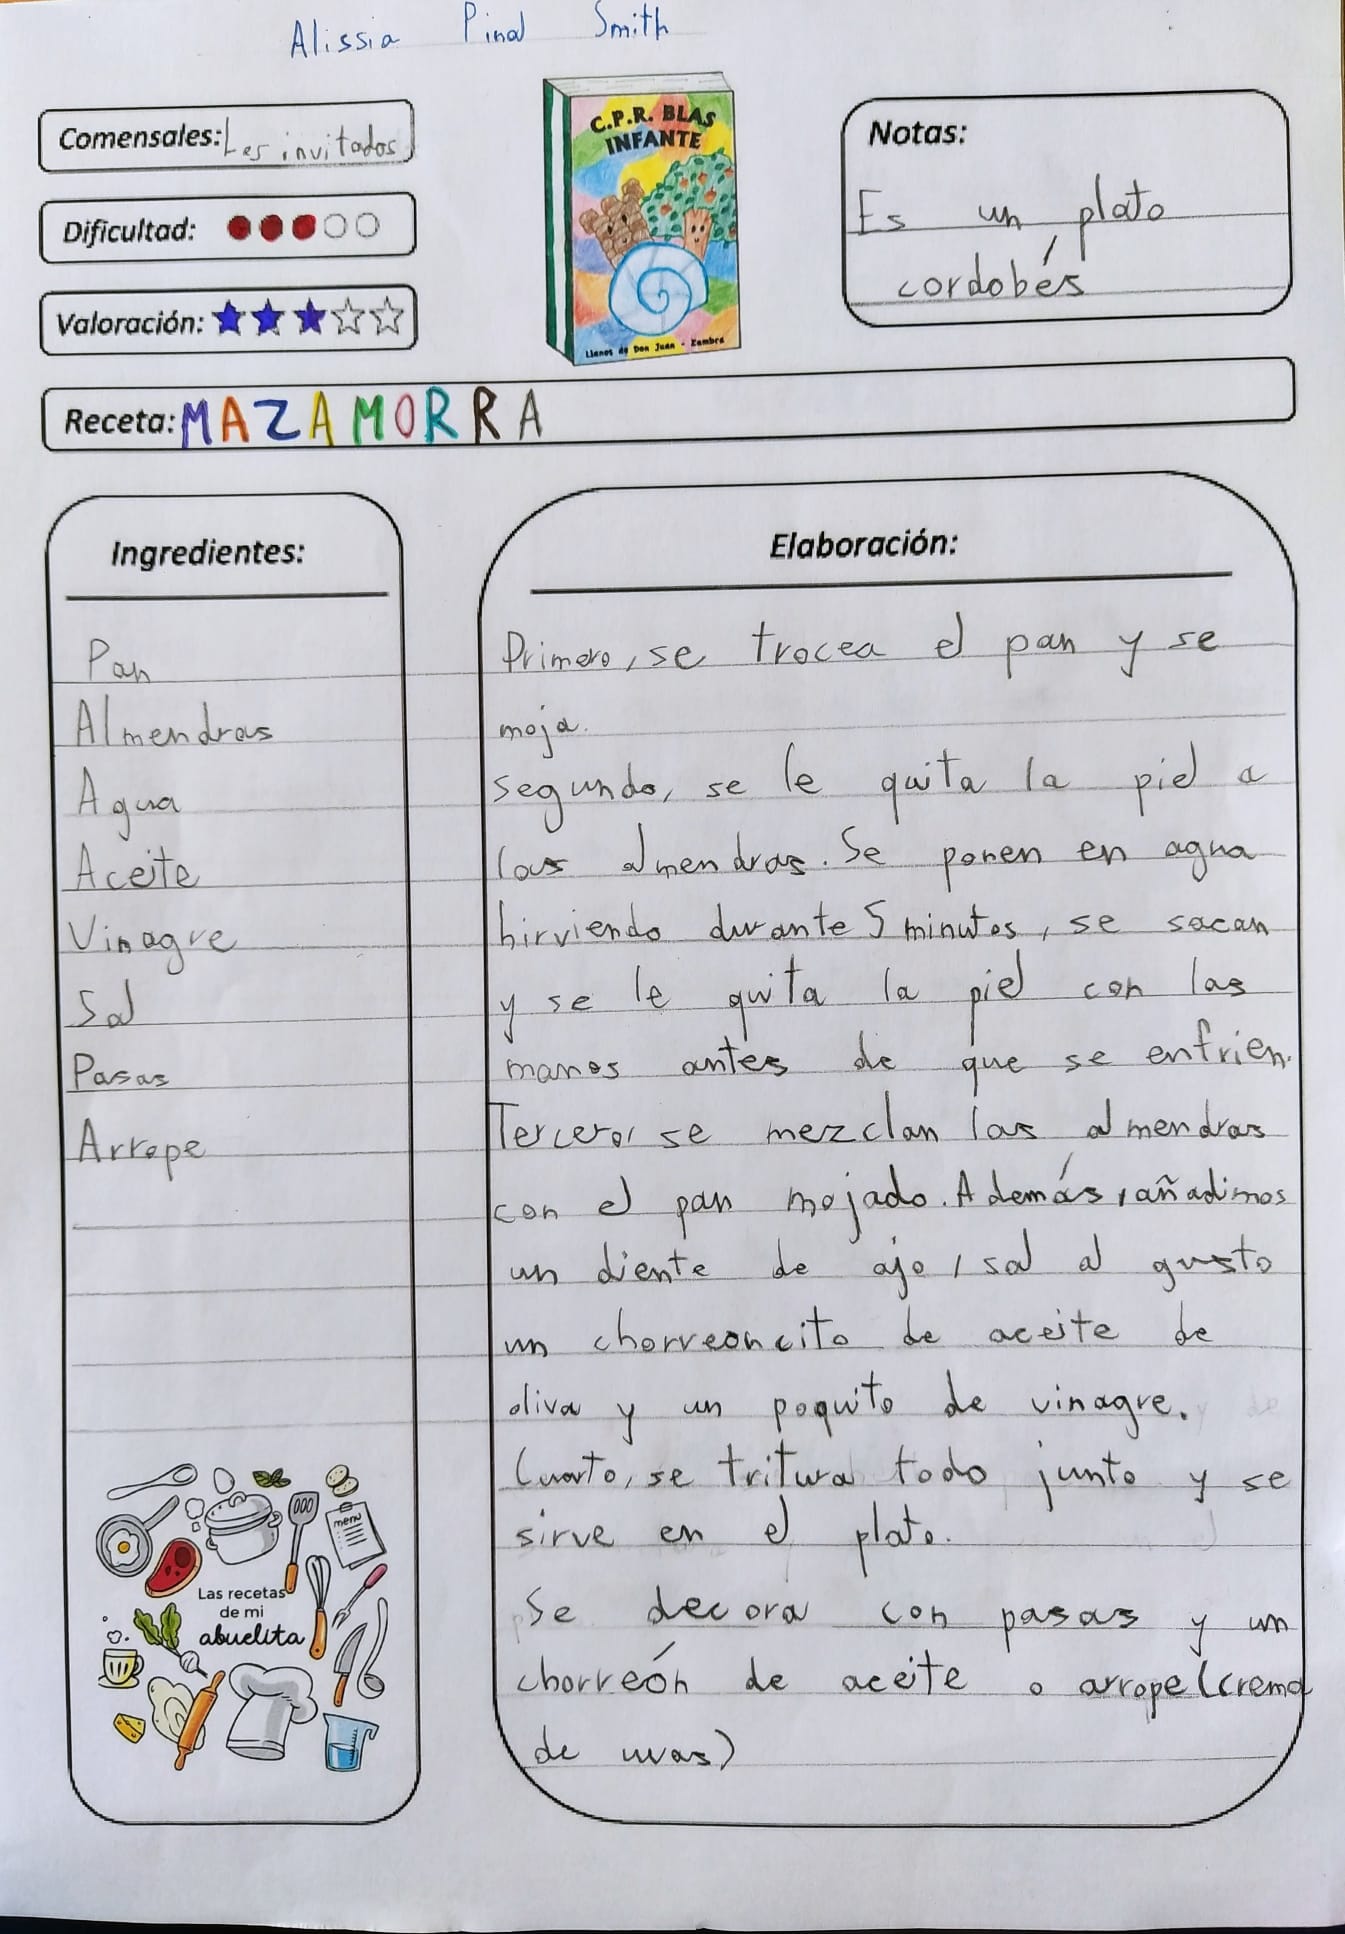 Alissia Pinal Smith
Comensales: Los invitados
Dificultad:
Valoración:
C.P.R. BLAS
INFANTE
Llanos de Don Juan - Zambra
Notas:
Es un plato
cordobés
Receta: MAZAMORRA
Ingredientes:
Pan
Almendras
Agua
Aceite
Vinagre
Sal
Pasas
Arrope
menu
Las recetas
de mi
abuelita
Elaboración:
Primero, se trocea el pan y se
moja.
Segundo, se le quita la piel a
las almendras. Se ponen en agua
hirviendo durante 5 minutos, se sacan
y se le quita la piel con las
manos antes de que se enfrien.
Tercero, se mezclan las almendras
con el pan mojado. Además, añadimos
un diente de ajo, sal al gusto
un chorreoncito de aceite de
oliva y un poquito de vinagre.
Cuarto, se tritura todo junto y se
sirve en el plato.
Se decora con pasas y un
chorreón de aceite o arrope (crema
de uvas)